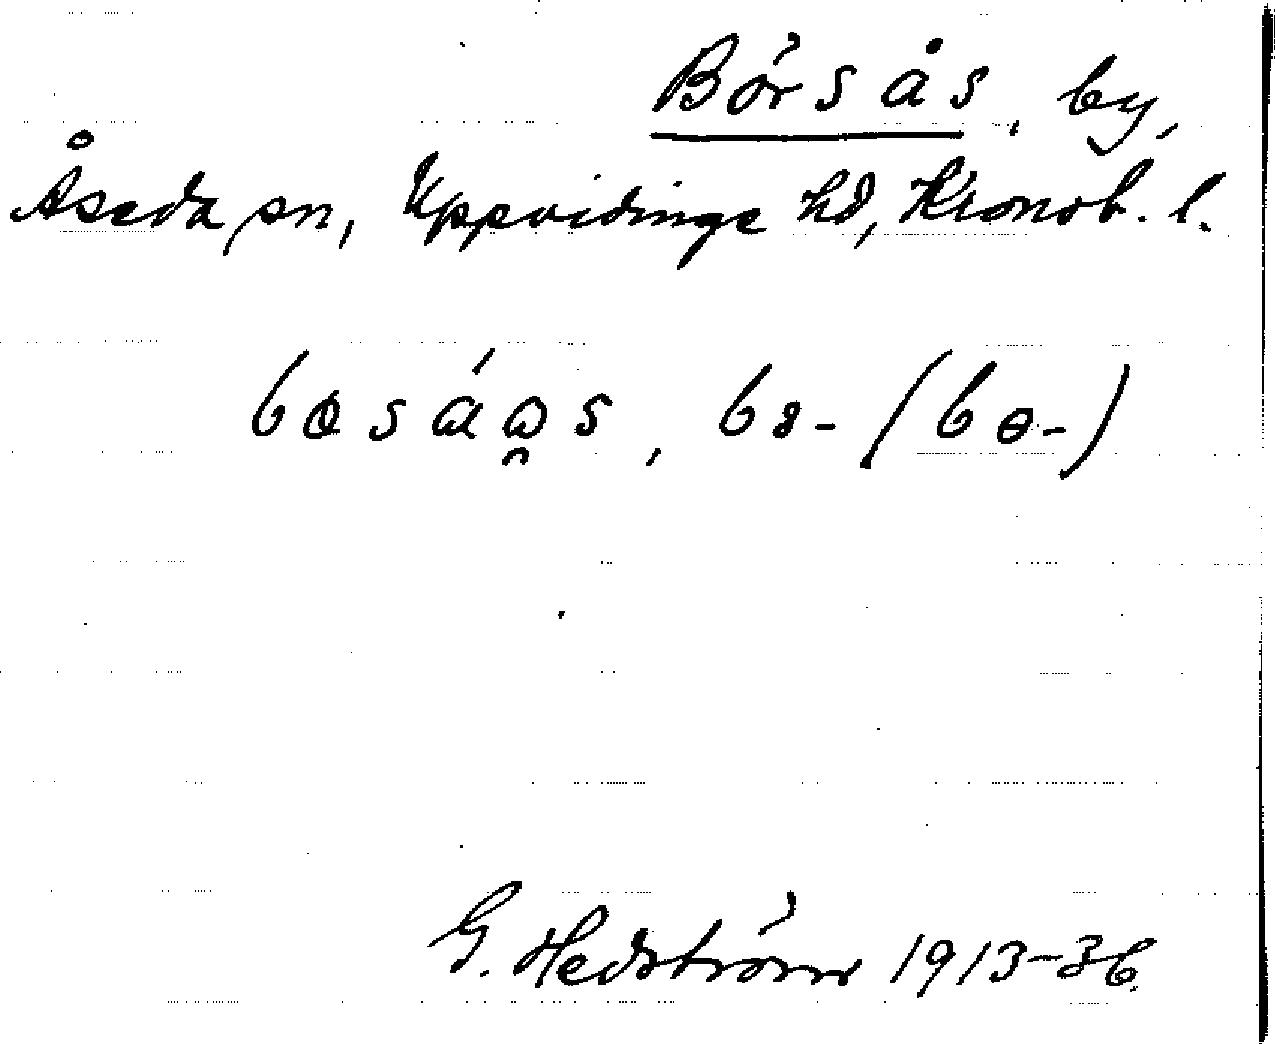 Börsås, by,
Åseda sn, Uppvidinge hd, Kronob. l.
G. Hedström 1913-36.